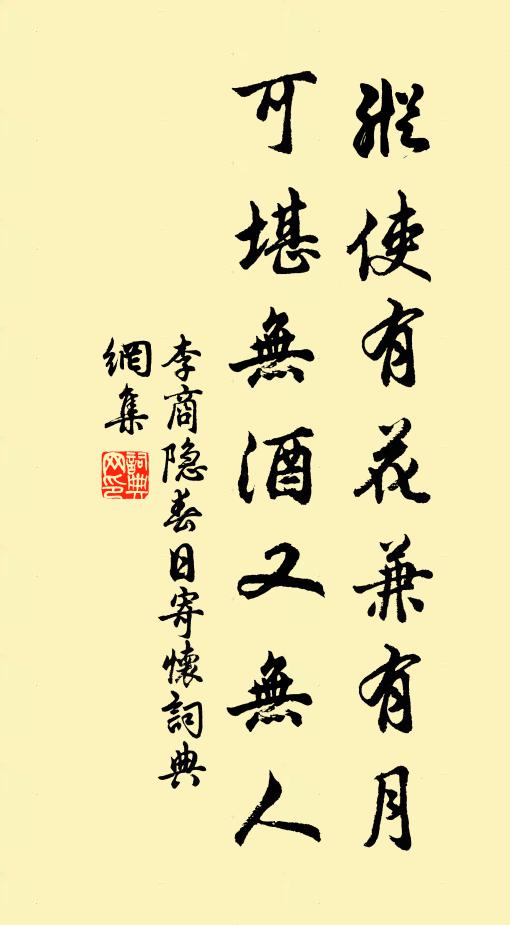 縱使有花兼有月
可堪無酒又無人
李商隐春日寄懷詞典
網集
詞典
网印